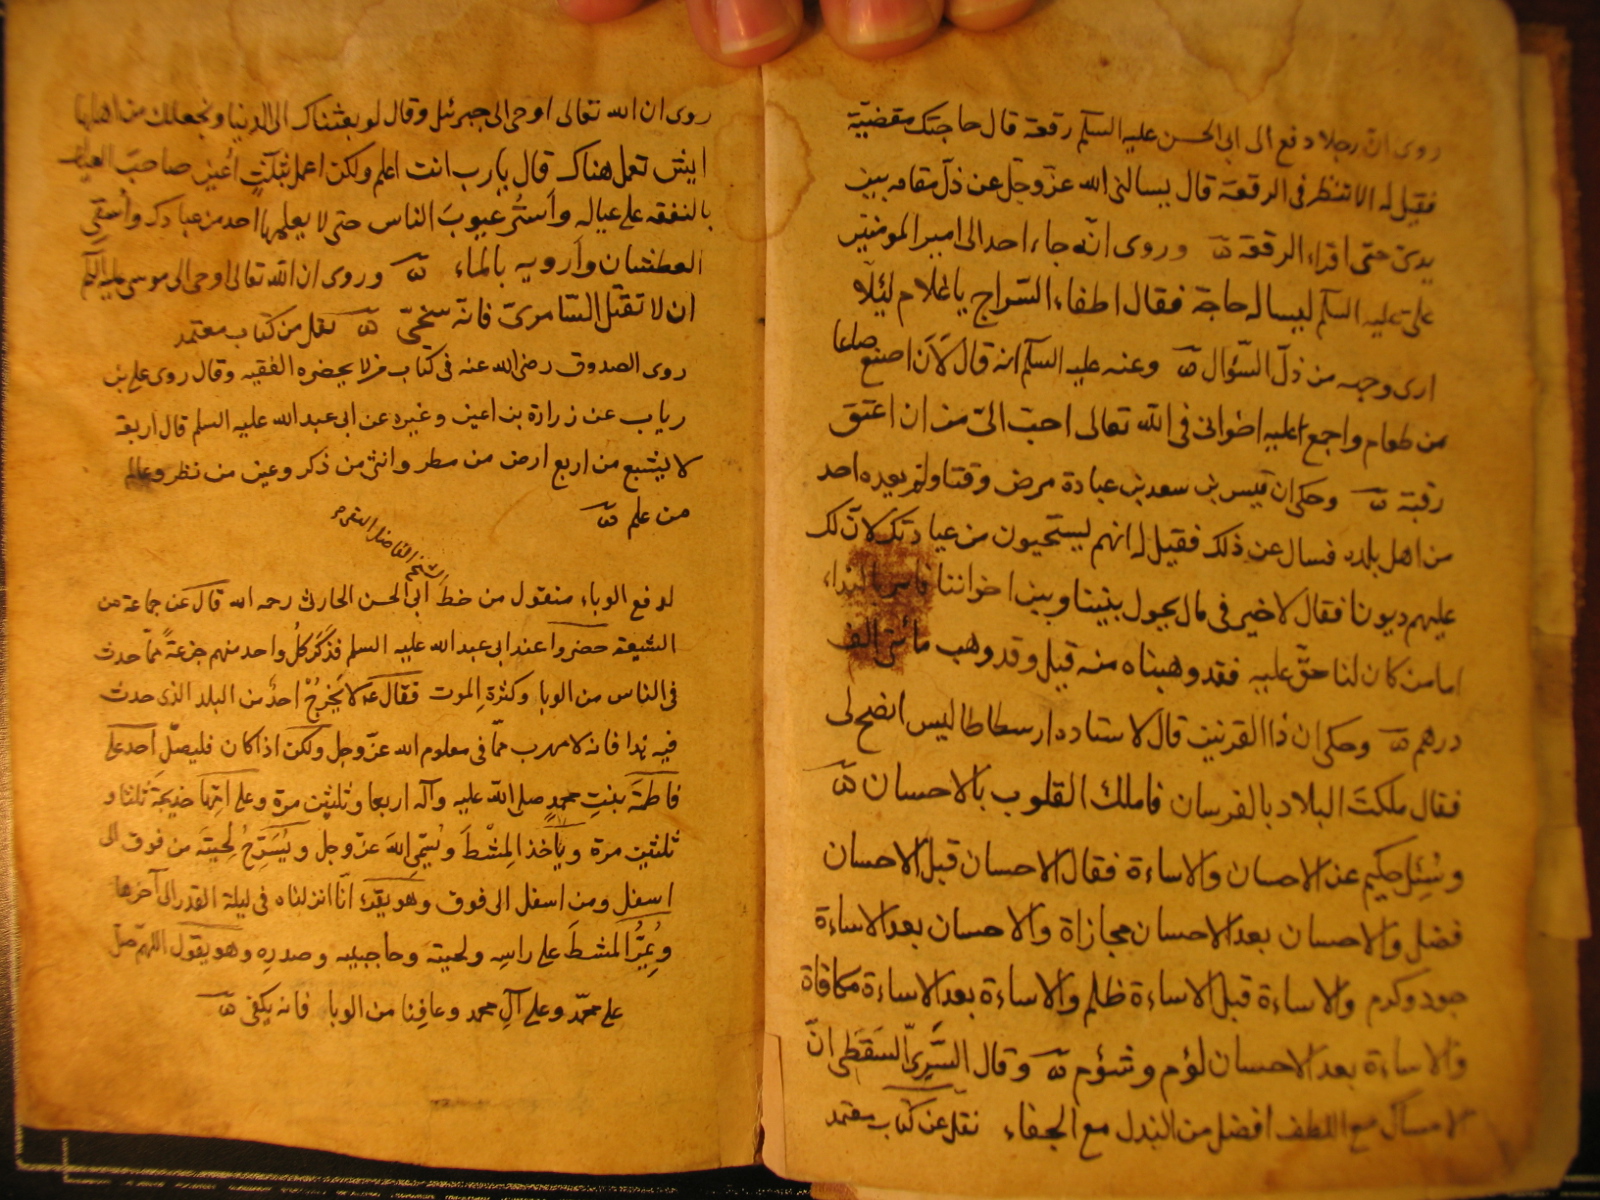 روى ان رجلا دفع الى ابى الحسن عليه السلم رقعة قال حاجتك مقضيّة
فقيل له الا تنظر فى الرقعة قال يسالنى الله عزّ وجلّ عن ذلّ مقامه بين
يدىّ حتى اقراء الرقعة وروى انّه جاء احد الى امير المومنين
علىّ عليه السلم ليساله حاجة فقال اطفاء السّراج يا غلام لئلّا
ارى وجهه من ذلّ السّؤال وعنه عليه السلم انه قال لأن اصنع صاعا
من طعام واجمع عليه اخوانى فى الله تعالى احبّ الىّ من ان اعتق
رقبة وحكى ان قيس بن سعد بن عبادة مرض وقتا ولم يعده احد
من اهل بلده فسال عن ذلك فقيل له انهم يستحيون من عيادتك لانّ لك
عليهم ديونا فقال لا خير فى مال يحول بيننا وبين اخواننا
اما من كان لنا حقّ عليه فقد وهبناه منه قيل وقد وهب مائتى الف
درهم وحكى ان ذا القرنين قال لاستاده ارسطاطاليس انصح لى
فقال ملكت البلاد بالفرسان فاملك القلوب بالاحسان
وسُئِل حكيم عن الاحسان والاساءة فقال الاحسان قبل الاحسان
فضل والاحسان بعد الاحسان مجازاة والاحسان بعد الاساءة
جود وكرم والاساءة قبل الاساءة ظلم والاساءة بعد الاساءة مكافاة
والاساءة بعد الاحسان لؤم وشؤم وقال السَّرىّ السَقَطى انّ
الامساك مع اللطف افضل من البذل مع الجفاء نقل عن كتاب معتمد
روى ان الله تعالى اوحى الى جبرئيل وقال لو بعثناك الى الدنيا ونجعلك من اهلها
ايش تعمل هناك قال يا رب انت اعلم ولكن اعمل بثلث اُعين صاحب العيال
بالنفقه على عياله وأستُر عيوبَ الناس حتى لا يعلمها احد من عبادك وأسقى
العطشان واَرويه بالماء وروى ان الله تعالى اوحى الى موسى عليه السلم
ان لا تقتل السّامرىّ فانّه سخىّ نقل من كتاب معتمد
روى الصدوق رضى الله عنه فى كتاب من لا يحضره الفقيه وقال روى على بن
رياب عن زرارة بن اعين وغيره عن ابى عبد الله عليه السلم قال اربعة
لا يشبع من اربع ارض من مطر وانثى من ذكر وعين من نظر وعالم
من علم
الشيخ الفاضل
لدفع الوباء منقول من خطّ ابى الحسن الحارث رحمه الله قال عن جماعة من
الشيعة حضروا عند ابى عبد الله عليه السلم فذكر كلُ واحد منهم جزعةً ممّا حدث
فى الناس من الوبا وكثرةِ الموت فقال لا يخرجْ احدٌ من البلد الذى حدث
فيه بدا فانه لا مهرب ممّا فى معلوم الله عزّ وجل ولكن اذا كان فليصلّ احد على
فاطمة بنتِ محمدٍ صلى الله عليه وآله اربعا وثلثين مرة وعلى امّها خديجة ثلثا و
ثلثين مرة وياخذ المِشْطَ ويُسَمِّى اللهَ عزّ وجل ويُسَرِّحُ لِحيَتَه من فوق الى
اسفل ومن اسفل الى فوق وهو يقرء انّا انزلناه فى ليلة القدر الى آخرها
ويُمِرُّ المشطَ على راسِه ولحيته وحاجبيه وصدرِه وهو يقول اللهمّ صلّ
على محمّد وعلى آلِ محمد وعافِنا من الوبا فانه يكفى